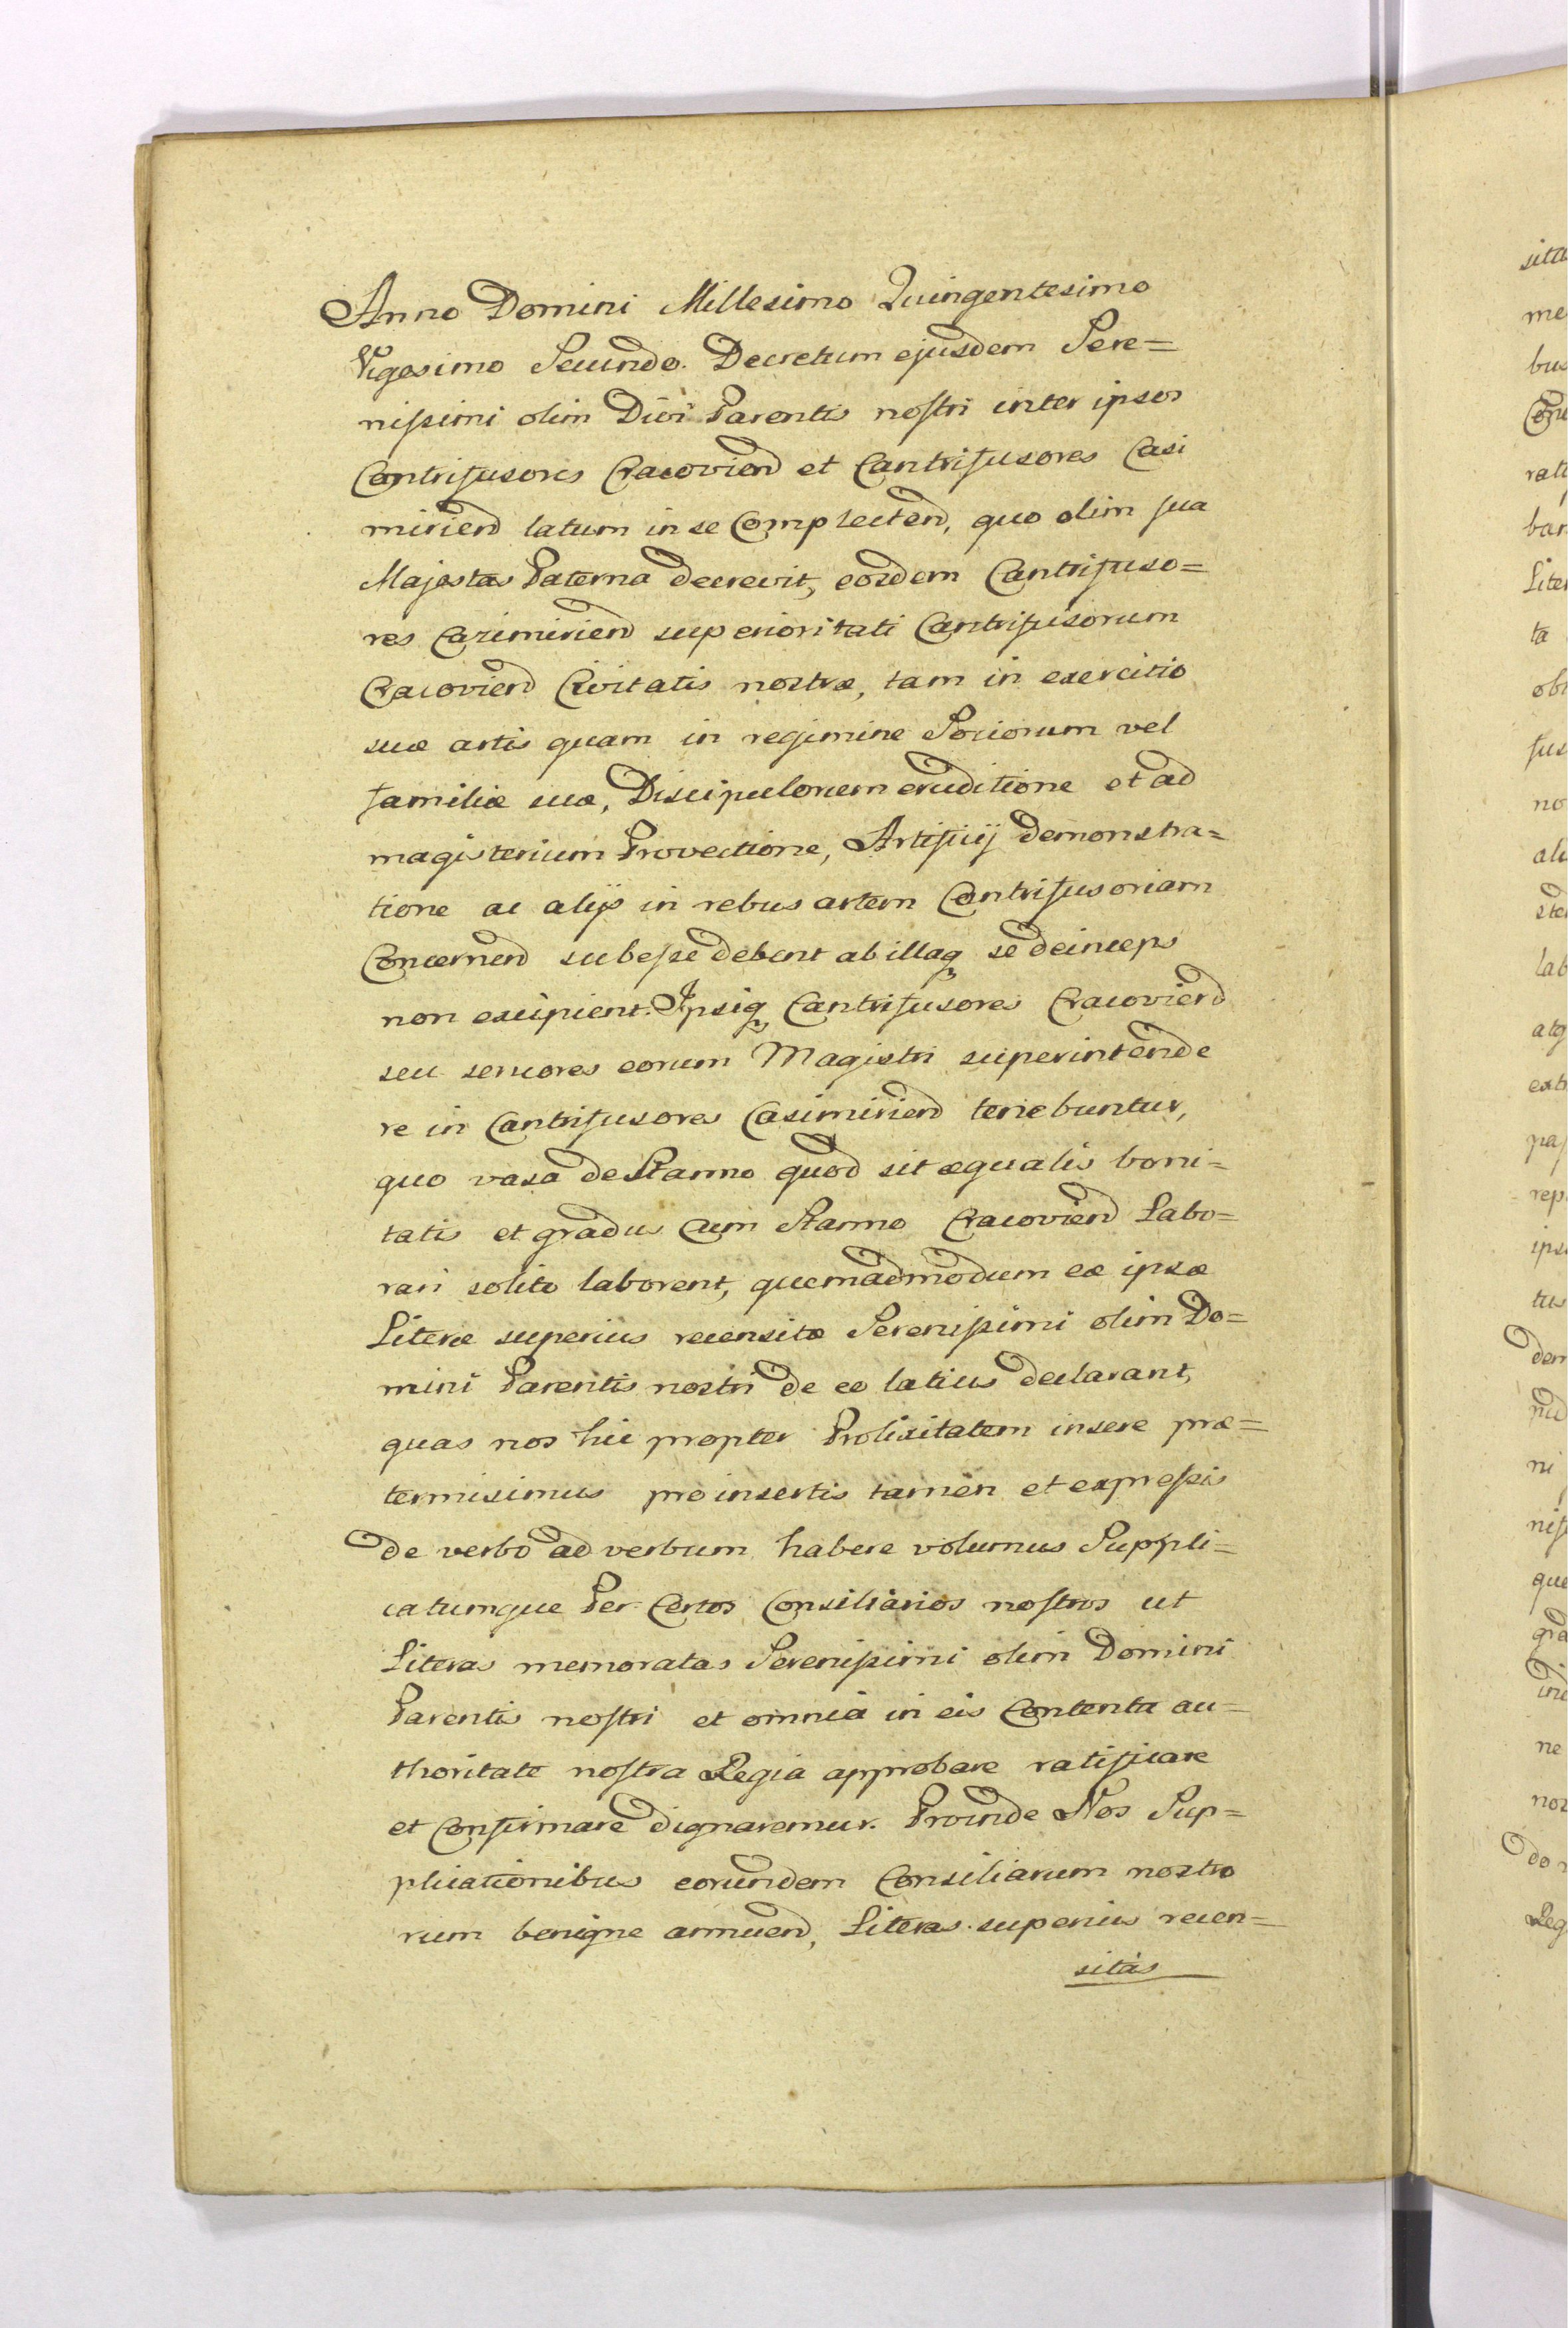 Anno Domini Millesimo Quingentesimo
Vigesimo Secundo. Decretum ejusdem Sere=
nissimi olim Divi Parentis nostri inter ipsos
Cantrifusores Cracoviend et Cantrifusores Casi
miriend latum in se Complectend, quo olim sua
Majestas Paterna decrevit, eosdem Cantrifuso=
res Cazimiriend superioritati Cantrifusorum
Cracoviend Civitatis nostræ, tam in exercitio
suæ artis quam in regimine Sociorum vel
familiæ suæ, Discipulorum eruditione et ad
magisterium Provectione, Artificij demonstra=
tione ac alijs in rebus artem Contrifusoriam
Concernend subesse debent ab illaq se deinceps
non excipient. Ipsiq Cantrifusores Cracoviend
seu seniores eorum Magistri superintende
re in Cantrifusores Casimiriend tenebuntur,
quo vasa de Stanno quod sit æqualis boni=
tatis et gradus Cum Stanno Cracoviend Labo=
rari solito laborent, quemadmodum eæ ipsæ
Literæ superius recensitæ Serenissimi olim Do=
mini Parentis nostri de eo latius declarant,
quas nos hic propter Prolixitatem insere præ=
termisimus pro insertis tamen et expressis
de verbo ad verbum habere volumus Suppli=
catumque Per Certos Consiliarios nostros ut
Literas memoratas Serenissimi olim Domini
Parentis nostri et omnia in eis Contenta au=
thoritate nostra Regia approbare ratificare
et Confirmare dignaremur. Proinde Nos Sup=
plicationibus eorundem Consiliarum nostro
rum benigne annuend, Literas superius recen=
sitas